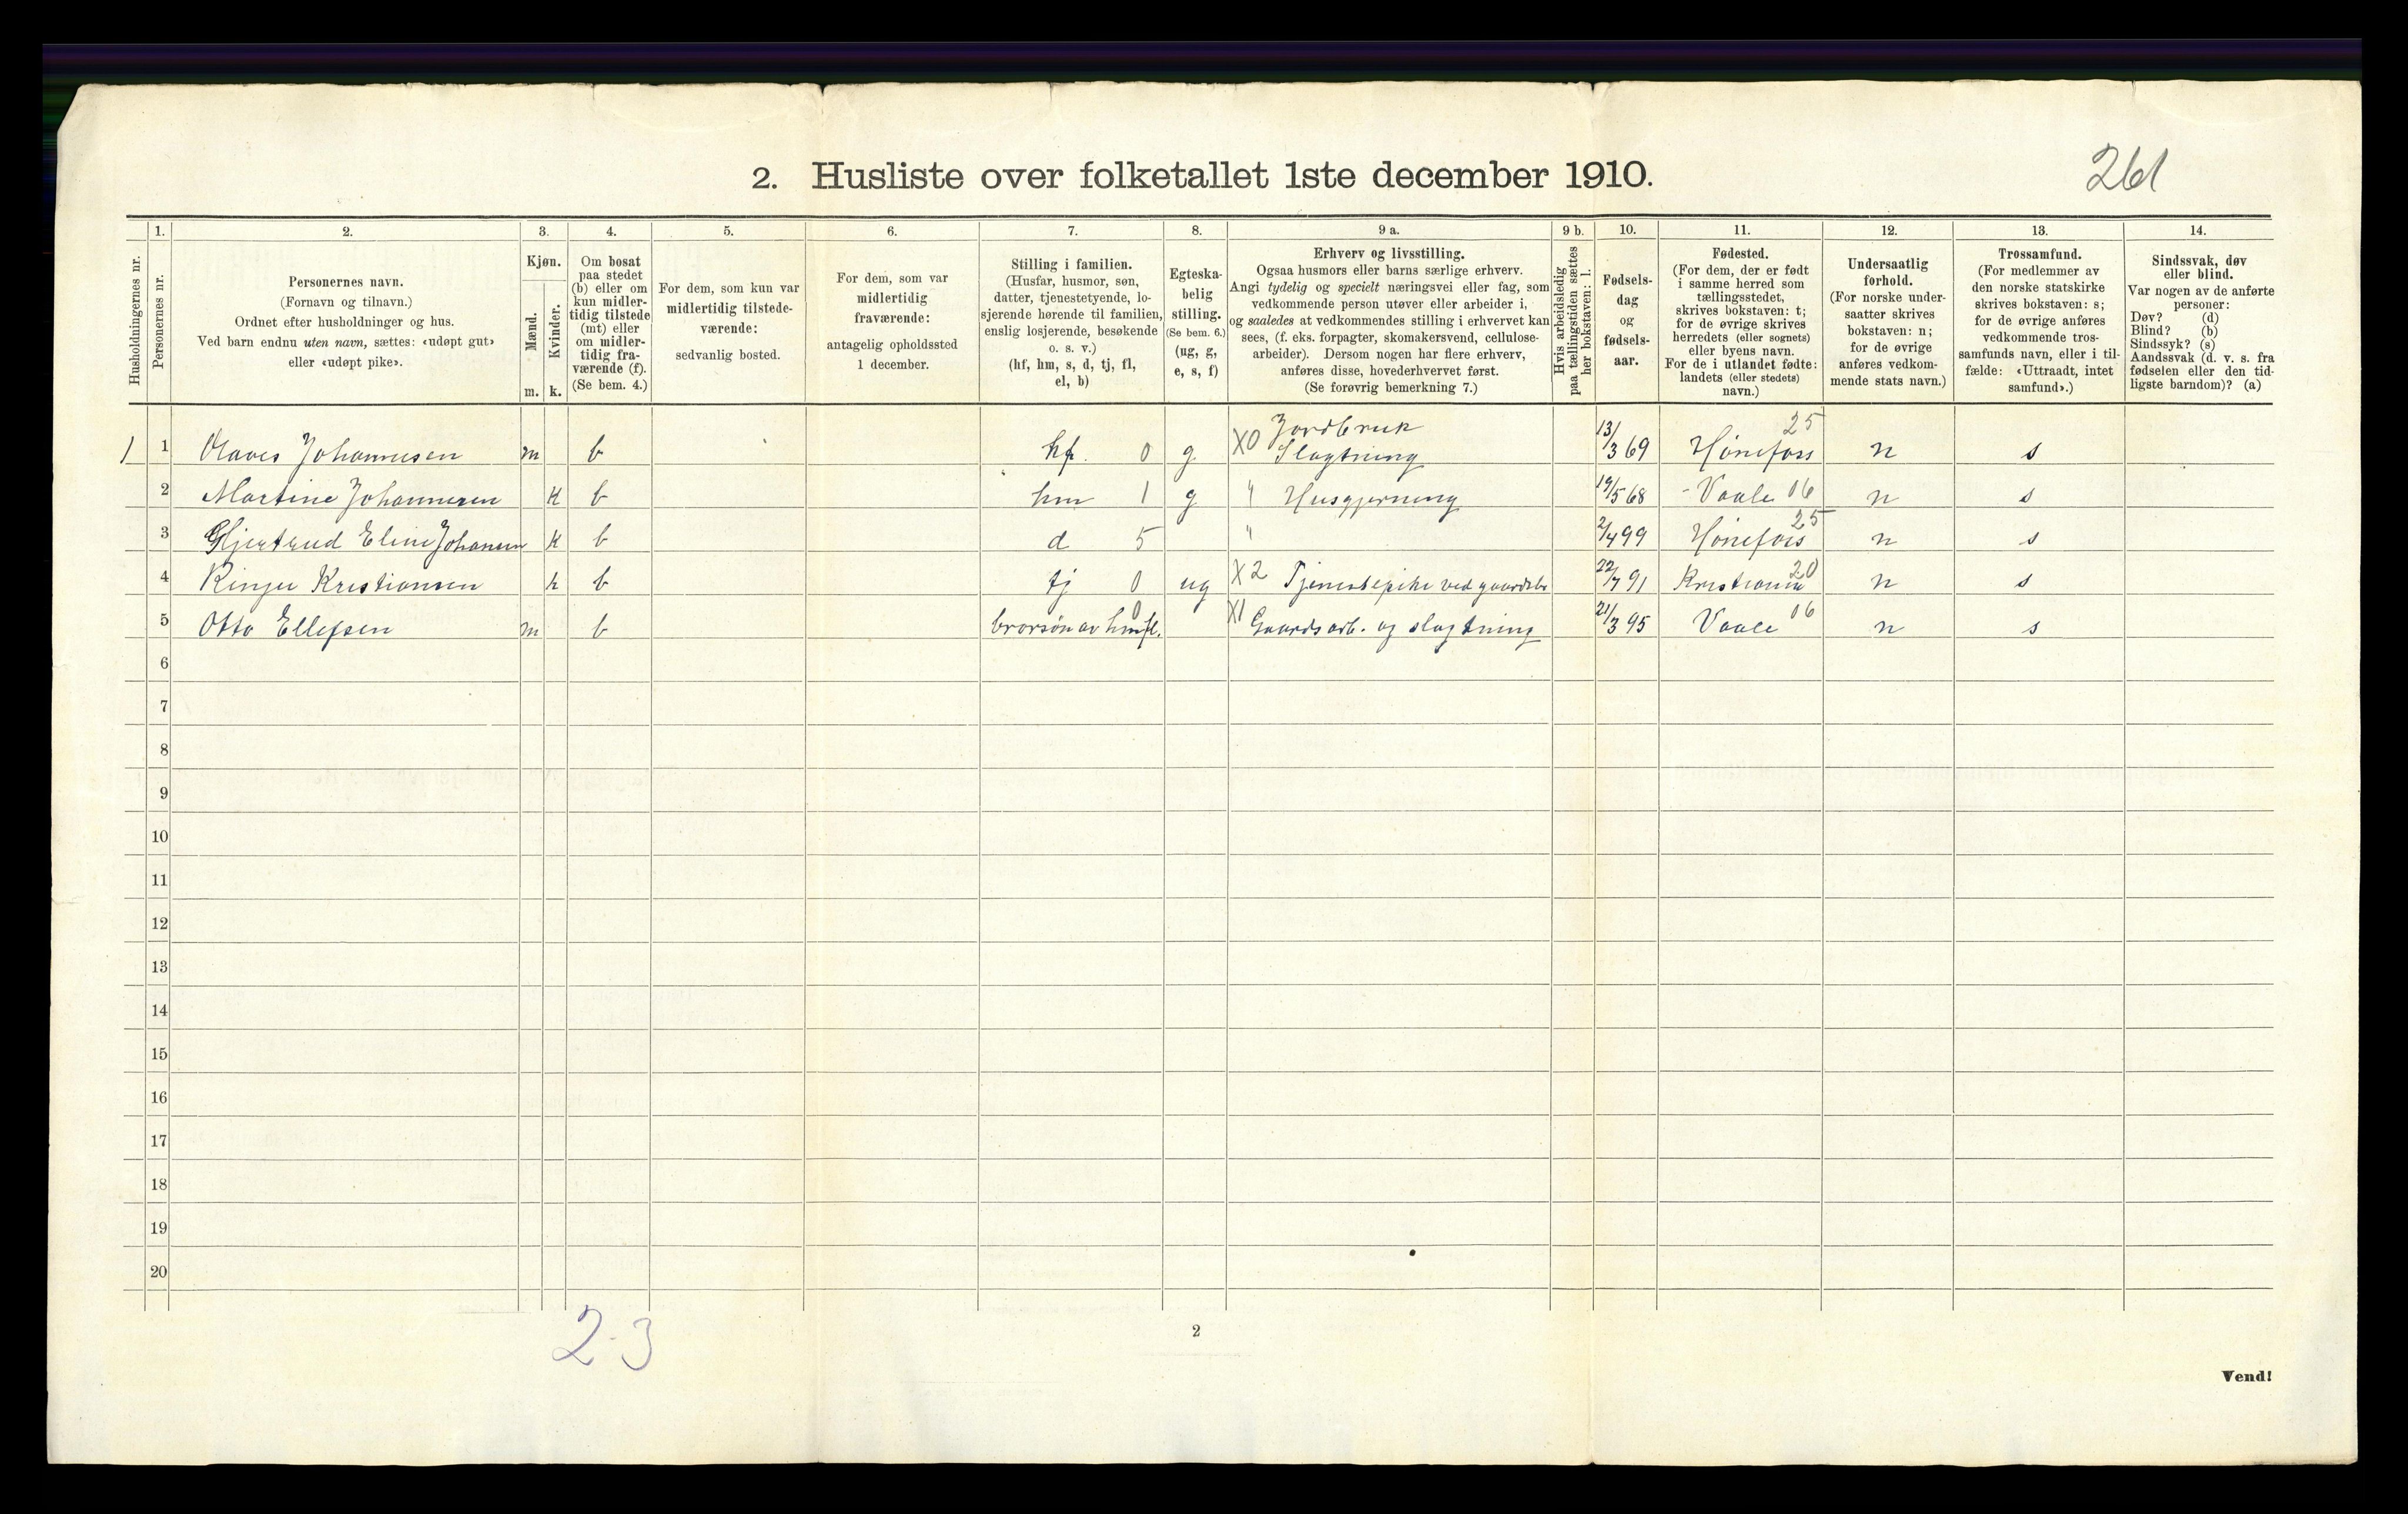 2. Husliste over folketallet 1ste december 1910.
261
Husholdningernes nr.
1.
Personernes nr.
2.
Personernes navn.
(Fornavn og tilnavn.)
Ordnet efter husholdninger og hus.
Ved barn endnu uten navn, sættes: «udøpt gut»
eller «udøpt pike».
3.
Kjøn.
Mænd.
Kvinder.
m. k.
4.
Om bosat
paa stedet
(b) eller om
kun midler-
tidig tilstede
(mt) eller
om midler-
tidig fra-
værende (f).
(Se bem. 4.)
5.
For dem, som kun var
midlertidig tilstede-
værende:
sedvanlig bosted.
6.
For dem, som var
midlertidig
fraværende:
antagelig opholdssted
1 december.
7.
Stilling i familien.
(Husfar, husmor, søn,
datter, tjenestetyende, lo-
sjerende hørende til familien,
enslig losjerende, besøkende
o. s. v.)
(hf, hm, s, d, tj, fl,
el, b)
8.
Egteska-
belig
stilling.
(Se bem. 6.)
(ug, g,
e, s, f)
9 a.
Erhverv og livsstilling.
Ogsaa husmors eller barns særlige erhverv.
Angi tydelig og specielt næringsvei eller fag, som
vedkommende person utøver eller arbeider i,
og saaledes at vedkommendes stilling i erhvervet kan
sees, (f. eks. forpagter, skomakersvend, cellulose-
arbeider). Dersom nogen har flere erhverv,
anføres disse, hovederhvervet først.
(Se forøvrig bemerkning 7.)
9 b.
Hvis arbeidsledig
paa tællingstiden sættes
her bokstaven: l.
10.
Fødsels-
dag
og
fødsels-
aar.
11.
Fødested.
(For dem, der er født
i samme herred som
tællingsstedet,
skrives bokstaven: t;
for de øvrige skrives
herredets (eller sognets)
eller byens navn.
For de i utlandet fødte:
landets (eller stedets)
navn.)
12.
Undersaatlig
forhold.
(For norske under-
saatter skrives
bokstaven: n;
for de øvrige
anføres vedkom-
mende stats navn.)
13.
Trossamfund.
(For medlemmer av
den norske statskirke
skrives bokstaven: s;
for de øvrige anføres
vedkommende tros-
samfunds navn, eller i til-
fælde: «Uttraadt, intet
samfund».)
14.
Sindssvak, døv
eller blind.
Var nogen av de anførte
personer:
Døv? (d)
Blind? (b)
Sindssyk? (s)
Aandssvak (d. v. s. fra
fødselen eller den tid-
ligste barndom)? (a)
Jordbruk 25
1 1 Olaves Johannesen m b hf. 0 g X0 Slagtning 13/3 69 Hønefoss n s
2 Martine Johannesen k b hm 1 g " Husgjerning 19/5 68 - Vaale 06 n s
3 Hjertrud Eline Johansen k b d 5 " 2/4 99 Hønefoss 25 n s
4 Kristiansen k b tj 0 ug X2 Tjenestepike ved gaardsbr 22/7 91 Kristiania 20 n s
5 Otto Ellefsen m b brorsøn av hm fl. 0 X1 Gaardsarb. og slagtning 21/3 95 Vaale 06 n s
6
7
8
9
10
11
12
13
14
15
16
17
18
19
20
2-3
2
Vend!